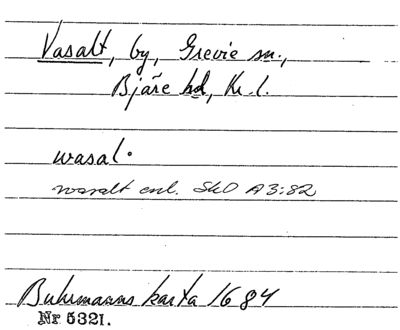 Vasalt, by, Grevie sn.,
Bjäre hd, Kr. l.
wasal.
wasalt enl. SkO A3:82
Buhrmanns karta 1684
Nr 5321.